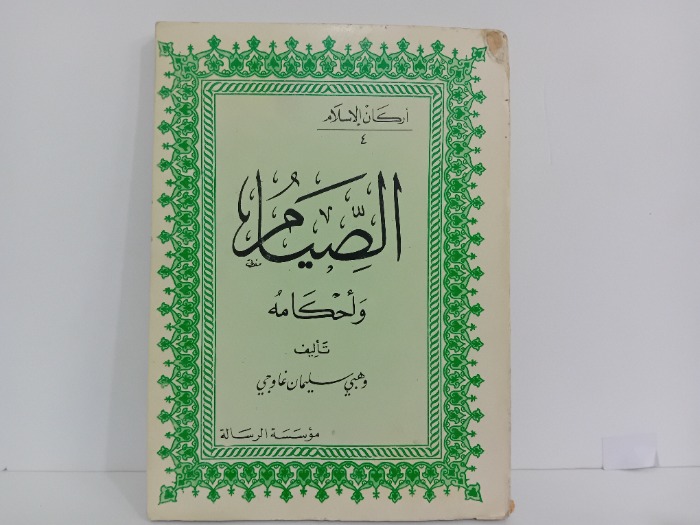 أركان الإسلام
٤
الصِّيَامُ
وَأحْكَامُه
تأليف
وهبي سليمان غاوجي
مؤسسة الرسالة